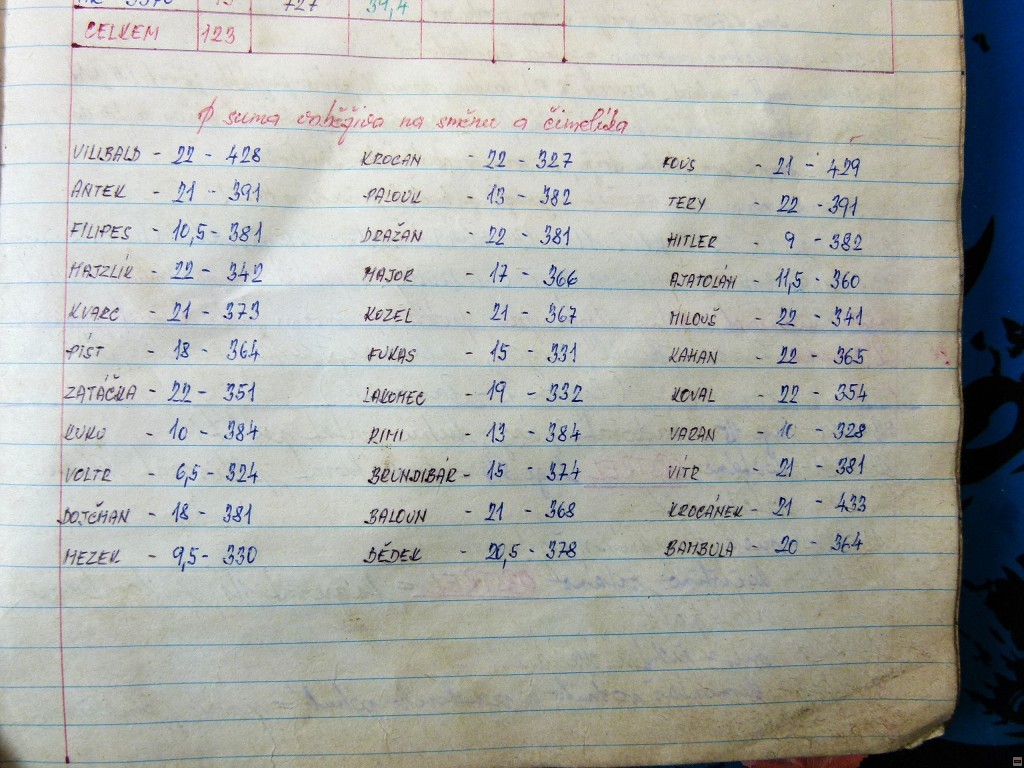 727 39,4
CELKEM 123
φ suma na směnu a čimelíka
VILIBALD - 22 - 428 KROCAN - 22 - 327 KOUS - 21 - 429
ANTEK - 21 - 391 PALOUK - 13 - 382 TERY - 22 - 391
FILIPES - 10,5 - 381 DRAŽAN - 22 - 381 HITLER - 9 - 382
MAJZLÍK - 22 - 342 MAJOR - 17 - 366 AJATOLÁH - 11,5 - 360
KVARC - 21 - 373 KOZEL - 21 - 367 MILOUŠ - 22 - 341
PÍST - 18 - 364 FUKAS - 15 - 331 KAHAN - 22 - 365
ZATÁČKA - 22 - 351 LAKOMEC - 19 - 332 KOVAL - 22 - 354
KUKU - 10 - 384 RIMI - 13 - 384 VARAN - 10 - 328
VOLTR - 6,5 - 324 BRUNDIBÁR - 15 - 374 VÍTR - 21 - 381
DOJČMAN - 18 - 381 BALOUN - 21 - 368 KROCÁNEK - 21 - 433
MEZEK - 9,5 - 330 DĚDEK - 20,5 - 378 BAMBULA - 20 - 364